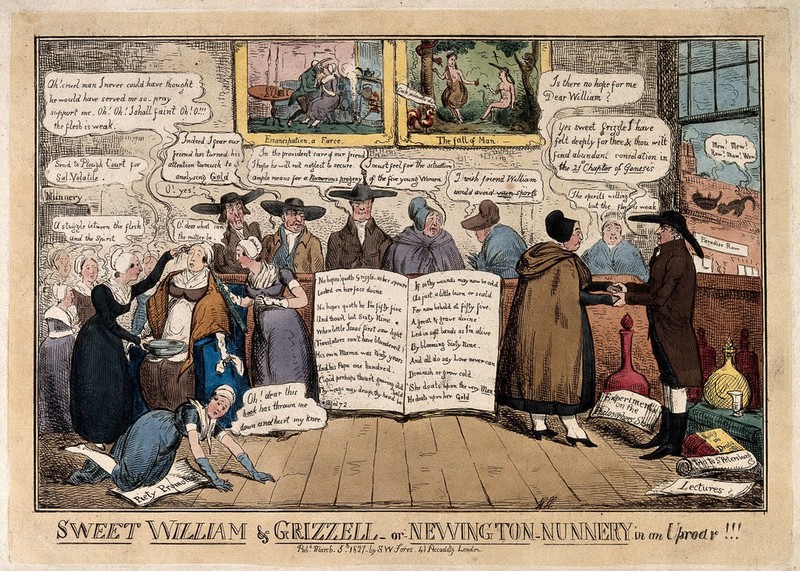 Oh! cruel man I never could have thought
he would have served me so - pray
support me. Oh! Oh! I shall faint Oh! O!!!
the flesh is weak
Send to Plough Court for
Sal Volatile
Nunnery
A stuggle between the flesh
and the Spirit
Oh! yes!
O! dear what can
the matter be
Indeed I fear our
friend has turned his
attention too much to
analysing Gold
In the provident care of our friend
I hope he will not neglect to secure
ample means for a Numerous progeny
I must feel for the situation
of the five young Women
I wish friend William
would avoid vain sports
Emancipation, a Farce.
The fall of Man
Is there no hope for me
Dear William?
Yes sweet Grizzle I have
felt deeply for thee & thou wilt
find abundant consolation in
the 21 Chapter of Geneses
The spirit is willing
but the flesh is weak
Mew! Mew!
Mow! Mow! Wow
Paradise Row
No hopes! quoth Grizzle. as her spouse
Looked on her face divine
No hopes quoth he I'm fifty five
And thou'rt but Sixty Nine
When little Isaac first saw light
(Translators can't have blundered)
His own Mama was Ninty years
And his Papa one hundred.
Cupid perhaps thou'rt growing old
Thy wings may droop thy head be
If so thy wounds may now be cold
As just a little burn or scald
For now behold at fifty five
A great & grave divine
Led in soft bands as I'm alive
By blooming Sixty Nine
And all do say Love never can
Diminish or grow cold
She doats upon the very Man
He doats upon her Gold
Oh! dear this
book has thrown me
down and hurt my knee
Piety Promoted
Experiments
on the
Philosophers Stone
Lectures
SWEET WILLIAM & GRIZZELL - or - NEWINGTON-NUNNERY in an Uproar!!!
Pubd. March. 5th. 1827. by S.W Fores. 41 Piccadilly London.